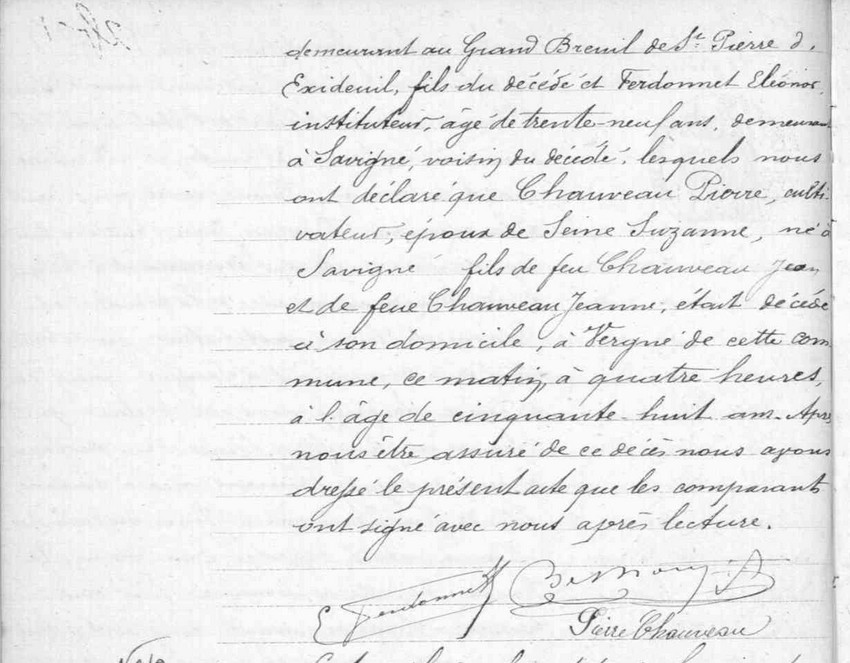 demeurant au Grand Breuil de St Pierre d,
Exideuil, fils du décédé et Ferdonnet Eléonor,
instituteur, âgé de trente-neuf ans, demeurant
à Savigné, voisin du décédé, lesquels nous
ont déclaré que Chauveau Pierre, culti-
vateur, époux de Seine Suzanne, né à
Savigné fils de feu Chauveau Jean
et de feue Chauveau Jeanne, était décédé
à son domicile, à Vergné de cette com
mune, ce matin, à quatre heures,
a l'âge de cinquante huit ans. Après
nous être assuré de ce décès nous avons
dressé le présent acte que les comparants
ont signé avec nous après lecture.
E Ferdonnet
Pierre Chauveau